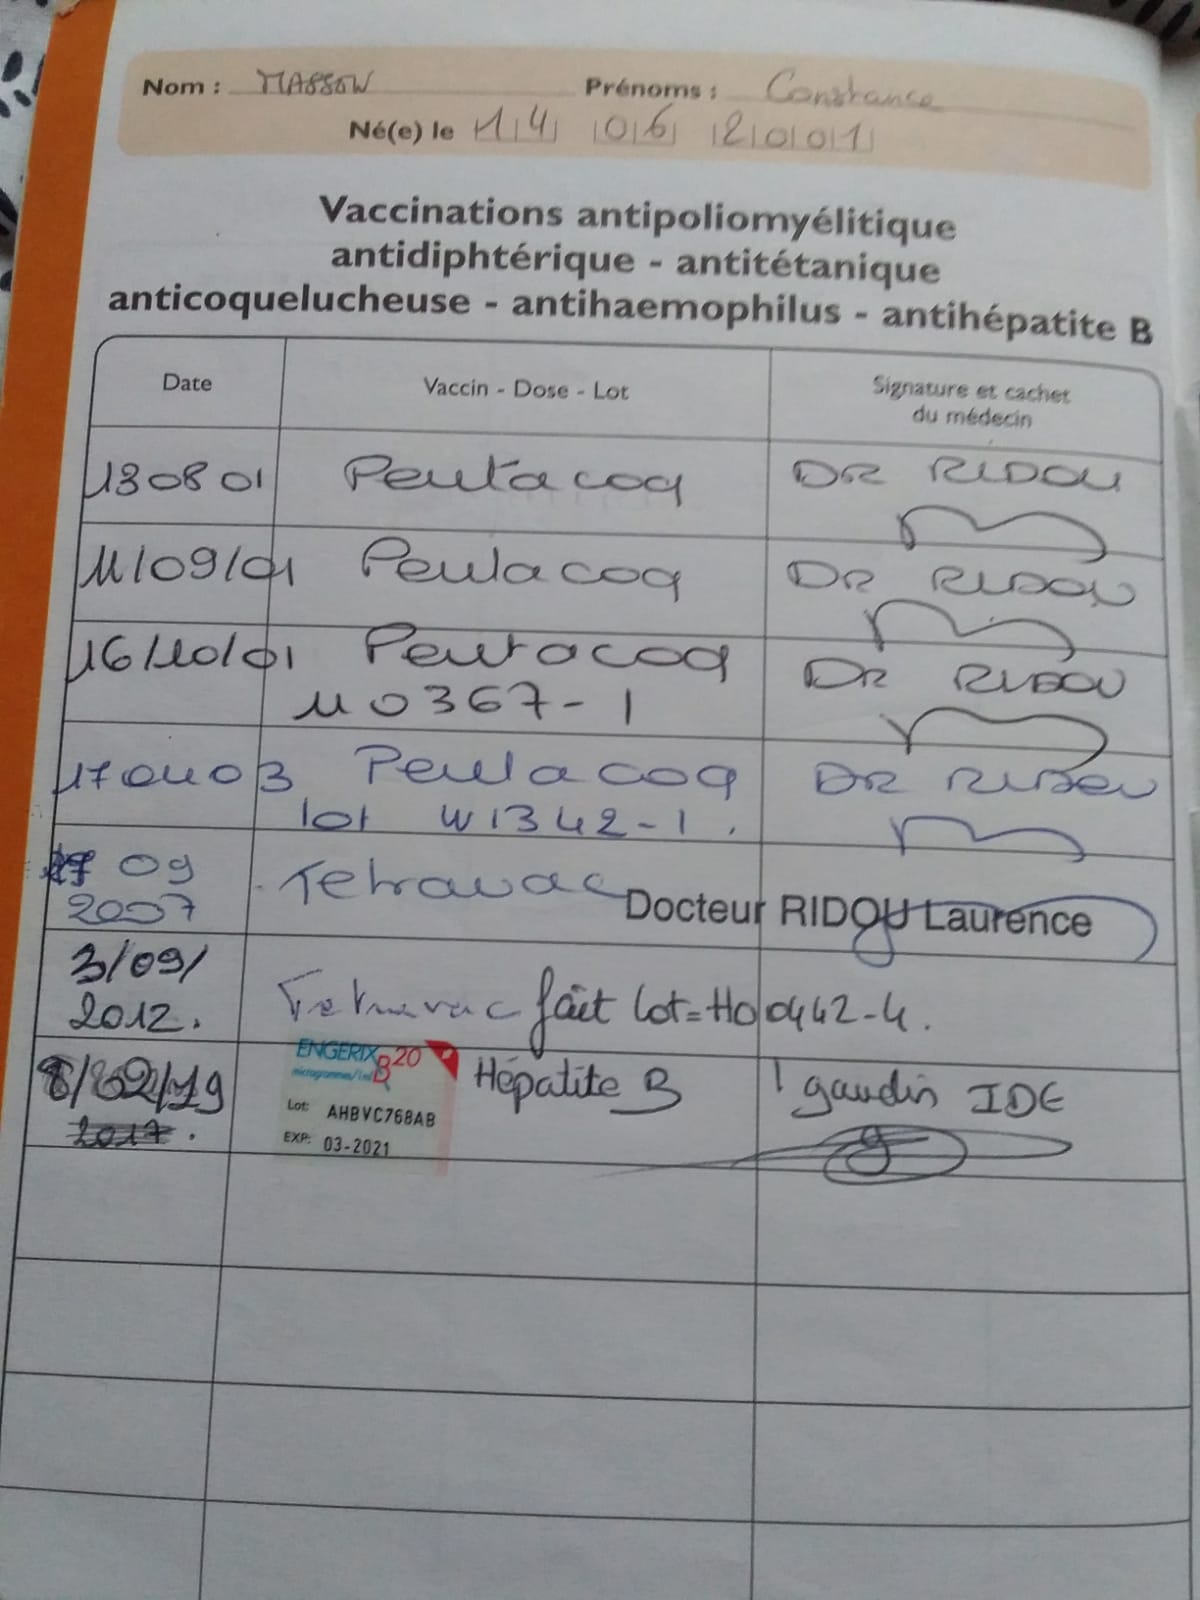 Nom : MASSON Prénoms : Constance
Né(e) le 14 06 2001
Vaccinations antipoliomyélitique
antidiphtérique - antitétanique
anticoquelucheuse - antihaemophilus - antihépatite B
Date Vaccin - Dose - Lot Signature et cachet
du médecin
130801 Pentacoq DR RIDOU
11/09/01 Pentacoq DR RIDOU
16/10/01 Pentacoq DR RIDOU
U0367-1
170403 Pentacoq DR RIDOU
lot W1342-1.
09
2007 Tetravac Docteur RIDOU Laurence
3/09/
2012. Tetravac fait lot=H00442-4.
ENGERIX B20 Hépatite B gaudin IDE
/02/19
2017.
Lot: AHBVC768AB
EXP: 03-2021